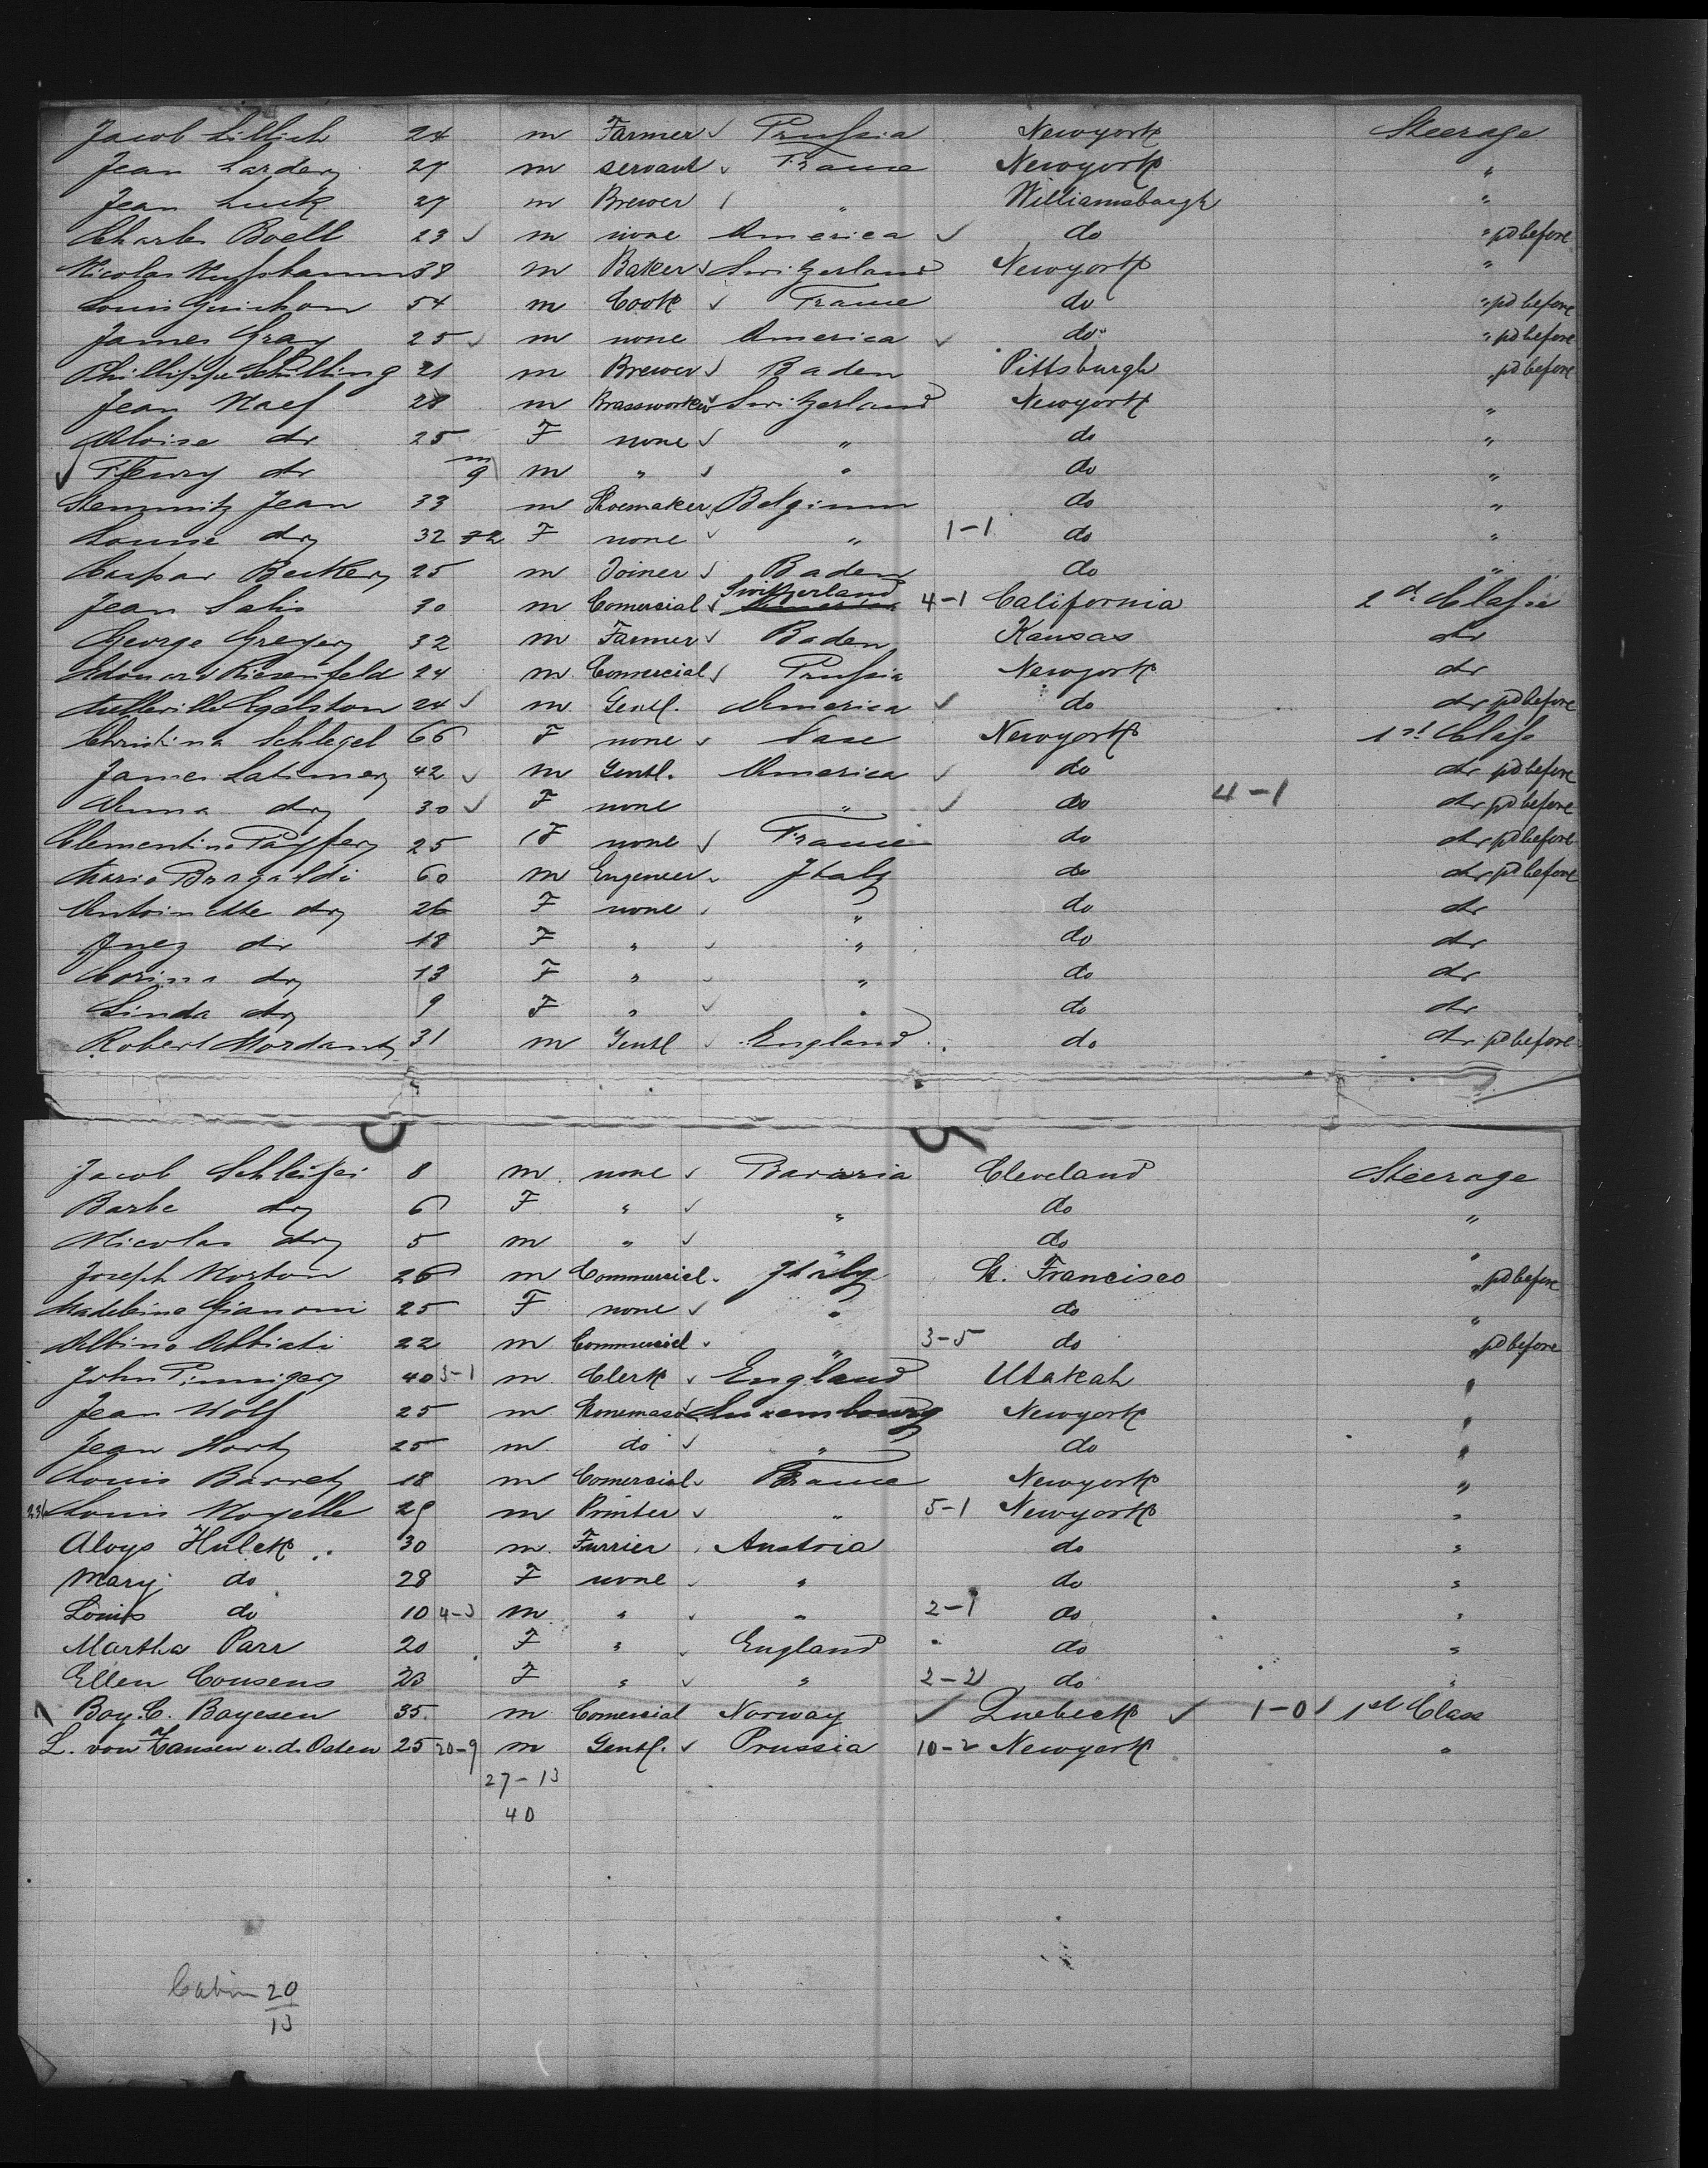 Jacob Lillich 24 m Farmer ✓ Prussia Newyork Steerage
Jean Lardery 27 m servant ✓ France Newyork "
Jean Luck 27 m Brewer " Williamsburgh "
Charles Boell 23 ✓ m none America ✓ do " pd before
Nicolas 38 m Baker ✓ Switzerland Newyork "
Louis Guichon 54 m Cook ✓ France do " pd before
James Gray 25 ✓ m none America ✓ do " pd before
Phillippe Schilling 21 m Brewer ✓ Baden Pittsburgh " pd before
Jean Naef 28 m Brassworker ✓ Switzerland Newyork "
Aloise do 25 F none ✓ " do "
✓ Fleury do m 9 m " ✓ " do "
Stemmitz Jean 33 m Shoemaker Belgium do "
Louise do 32 F none ✓ " 1-1 do "
Caspar Becker 25 m Joiner ✓ Baden do "
Jean Salis 30 m Comercial ✓ Switzerland America 4-1 California 2d Classe
George Gregery 32 m Farmer ✓ Baden Kansas do
Edouard Riesenfeld 24 m Comercial ✓ Prussia Newyork do
Egelston 24 ✓ m Gentl. America ✓ do do pd before
Christina Schlegel 66 F none ✓ Newyork 1st Class
James Latimer 42 ✓ m Gentl. America ✓ do do pd before
Anna do 30 ✓ F none " ✓ do 4-1 do pd before
Clementine 25 F none ✓ France do do pd before
Mario Bragaldi 60 m Engeneer Italy do do pd before
Antoinette do 26 F none " do do
Inez do 18 F " ✓ " do do
Corina do 13 F " " do do
Linda do 9 F " ✓ " do do
Robert Mordant 31 m Gentl ✓ England do do pd before
Jacob Schleifer 8 m none ✓ Bavaria Cleveland Steerage
Barbe do 6 F " ✓ " do "
Nicolas do 5 m " ✓ " do "
Joseph Morton 26 m Commercial Italy St. Francisco " pd before
Madeleine Gianoni 25 F none ✓ " do "
Albino Abbiati 22 m Commercial " 3-5 do " pd before
John Pinniger 40 3-1 m Clerk ✓ England Utakah "
Jean Wolf 25 m Stonemason Luxembourg Newyork "
Jean Hortz 25 m do ✓ " do "
Louis Barret 18 m Comercial France Newyork "
Louis Noyelle 29 m Printer ✓ " 5-1 Newyork "
Aloys Hulek 30 m Furrier Austria do "
Mary do 28 F none " do "
Louis do 10 4-3 m " " 2-1 do "
Martha Parr 20 F " England do "
Ellen Cousens 23 F " " 2-2 do "
Boy. C. Boyesen 35 m Comercial Norway ✓ Quebeck ✓ 1-0 ✓ 1st Class
L. von Hansen v. d. Osten 25 20-9 m Gentl. ✓ Prussia 10-2 Newyork "
27-13
40
Cabin 20
13